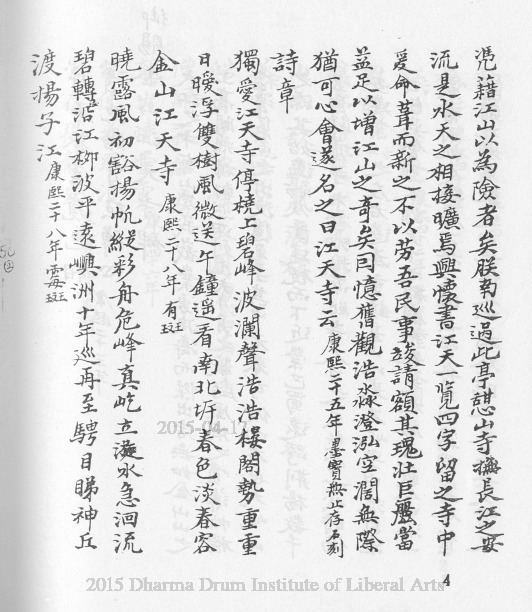 憑藉江山以為險者矣朕南巡過此亭憩山寺撫長江之安
流是水天之相接曠焉興懷書江天一覽四字留之寺中
爰命葺而新之不以勞吾民事竣請額其瑰壯巨麗當
益足以增江山之奇矣囙憶舊觀浩淼澄泓空濶無際
猶可心會遂名之曰江天寺云 康熙二十五年 墨寶無止存石刻
詩章
獨愛江天寺停橈上碧峰波瀾聲浩浩樓閣勢重重
日曖浮雙樹風微送午鐘遥看南北圻春色淡春容
金山江天寺 康熙二十八年 有斑
曉露風初豁揚帆縱彩舟危峰真屹立濺水急洄流
碧轉沿江柳波平遠嶼洲十年巡再至騁目睇神丘
渡揚子江 康熙二十八年 霉斑
4
2015-04-17
2015 Dharma Drum Institute of Liberal Arts